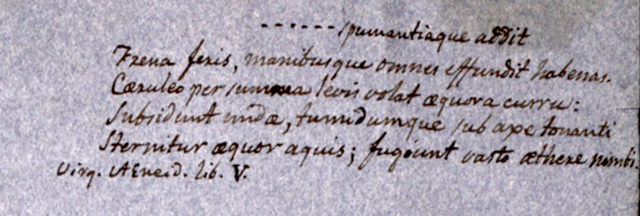 - - - - - - spumantiaque addit
Fræna feris, manibusque omnes effundit habenas.
Cæruleo per summa levis volat æquora curru:
Subsidunt undæ, tumidumque sub axe tonanti
Sternitur æquor aquis; fugiunt vasto æthere nimbi.
Virg. Æneid. lib. V.